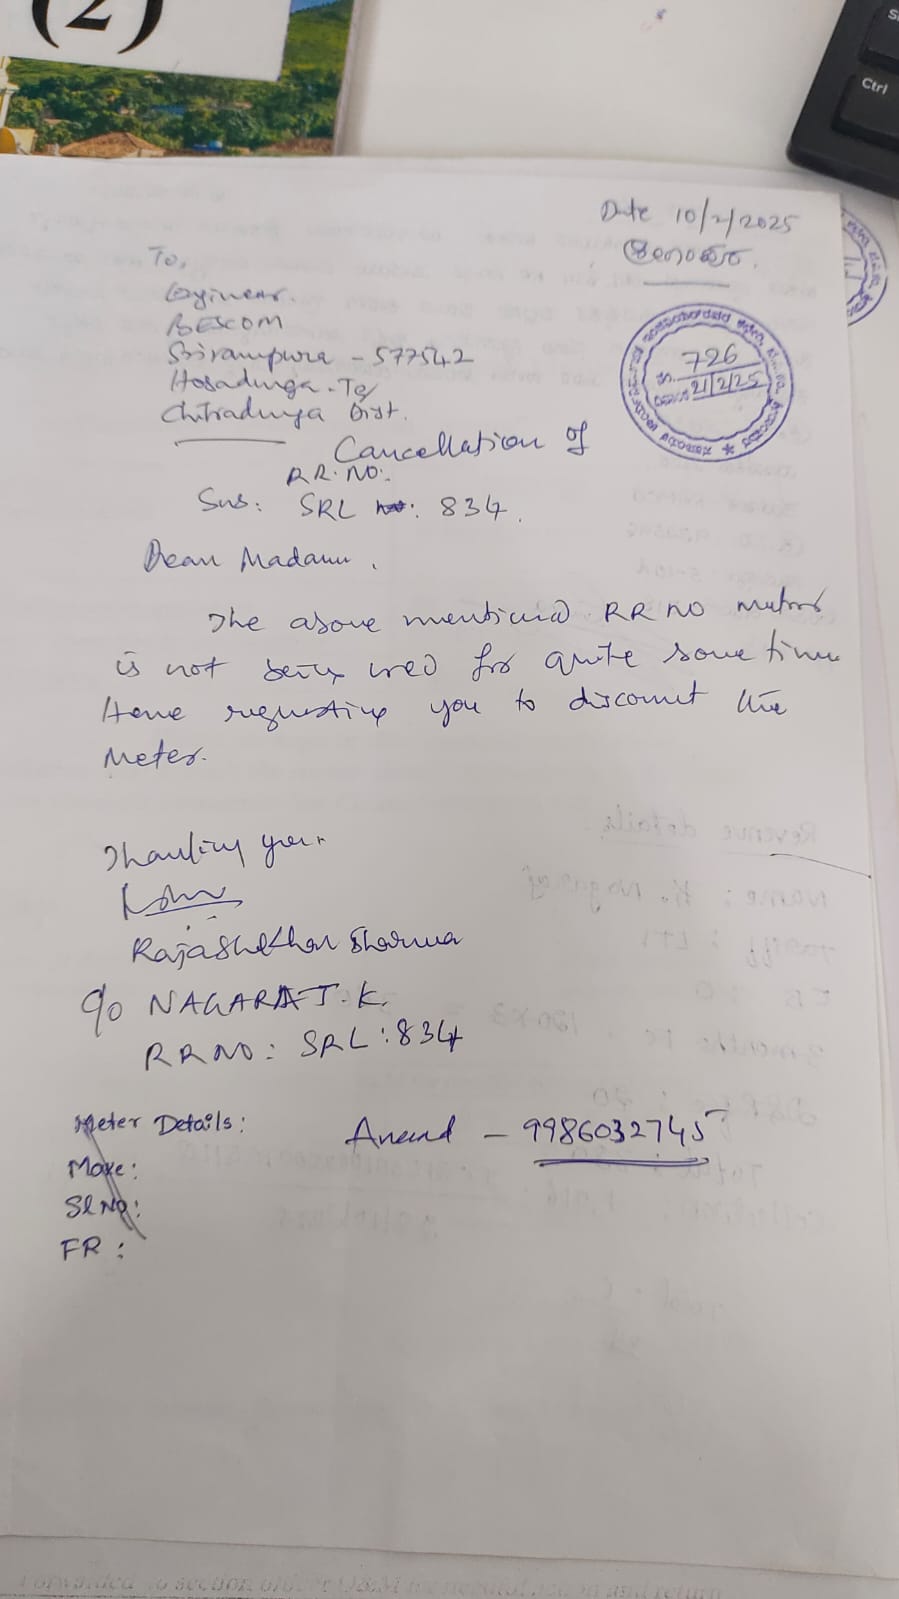 (2)
Ctrl
Date 10/2/2025
ಶ್ರೀರಾಂಪುರ.
To,
Engineer.
BESCOM
Srirampura - 577542
Hosadurga - Tq
Chitradurga Dist.
726
21/2/25
Cancellation of
RR. NO:.
Sub: SRL No: 834.
Dear Madam,
The above mentioned RR NO meter
is not being used for quite some time
Hence requesting you to disconnect the
Meter.
Thanking you
Rajashekhar Sharma
c/o NAGARAJ. K.
RRNO: SRL: 834
Meter Details:
Anand - 9986032745
Make:
Sl No:
FR :